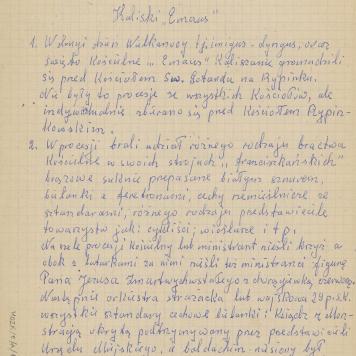 Kaliski „Emaus"
1. W drugi dzień Wielkanocy tj. śmigus-dyngus, oraz
święto Kościelne „Emaus" Kaliszanie gromadzili
się przed Kościołem Św. Gotarda na Rypinku.
Nie były to procesje ze wszystkich Kościołów, ale
indywidualnie zbierano się przed Kościołem Rypin-
kowskim.
2. W procesji brali udział różnego rodzaju bractwa
Kościelne w swoich strojach „franciszkańskich"
brązowe suknie przepasane białym sznurem,
baldachi z feretronami, cechy rzemieślnicze ze
sztandarami, różnego rodzaju przedstawiciele
towarzystw jak: cykliści, wioślarze i t.p.
Na czele procesji kościelny lub ministrant nieśli krzyż a
obok z latarkami za nimi nieśli też ministranci figurę
Pana Jezusa Zmartwychwstałego z chorągiewką czerwoną.
Następnie orkiestra strażacka lub wojskowa 29 p.s.k.
wszystkie sztandary cechowe i Ksiądz z Mon-
strancją okrytą podtrzymywany przez przedstawicieli
Urzędu Miejskiego, a baldachim niesiony był